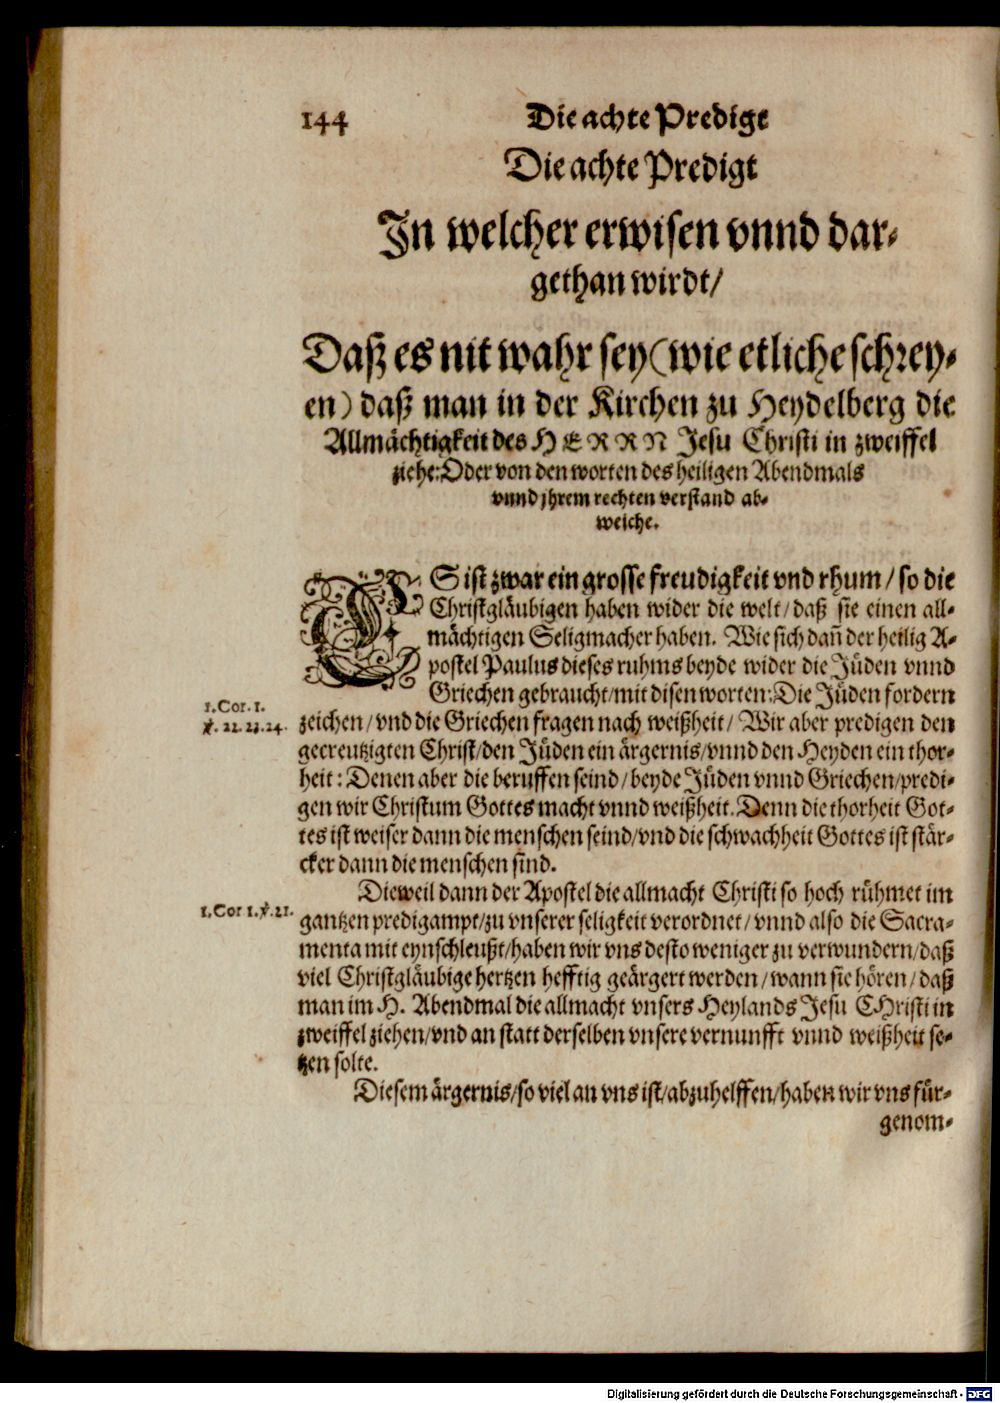 144 Die achte Predigt
Die achte Predigt
In welcher erwisen vnnd dar-
gethan wirdt/
Daß es nit wahr sey (wie etliche schrey-
en) daß man in der Kirchen zu Heydelberg die
Allmächtigkeit des HERRN Jesu Christi in zweiffel
ziehe: Oder von den worten des heiligen Abendmals
vnnd jhrem rechten verstand ab-
weiche.
ES ist zwar ein grosse freudigkeit vnd rhum/ so die
Christgläubigen haben wider die welt/ daß sie einen all-
mächtigen Seligmacher haben. Wie sich dañ der heilig A-
postel Paulus dieses ruhms beyde wider die Jüden vnnd
Griechen gebraucht/ mit disen worten: Die Jüden fordern
1. Cor. 1.
℣. 22. 23. 24.
zeichen/ vnd die Griechen fragen nach weißheit/ Wir aber predigen den
gecreutzigten Christ/ den Jüden ein ärgernis/ vnnd den Heyden ein thor-
heit: Denen aber die beruffen seind/ beyde Jüden vnnd Griechen/ predi-
gen wir Christum Gottes macht vnnd weißheit. Denn die thorheit Got-
tes ist weiser dann die menschen seind/ vnd die schwachheit Gottes ist stär-
cker dann die menschen sind.
Dieweil dann der Apostel die allmacht Christi so hoch rühmet im
1. Cor 1. ℣. 21.
gantzen predigampt/ zu vnserer seligkeit verordnet/ vnnd also die Sacra-
menta mit eynschleußt/ haben wir vns desto weniger zu verwundern/ daß
viel Christgläubige hertzen hefftig geärgert werden/ wann sie hören/ daß
man im H. Abendmal die allmacht vnsers Heylands Jesu CHristi in
zweiffel ziehen/ vnd an statt derselben vnsere vernunfft vnnd weißheit se-
tzen solte.
Diesem ärgernis/ so viel an vns ist/ abzuhelffen/ haben wir vns für-
genom-
Digitalisierung gefördert durch die Deutsche Forschungsgemeinschaft - DFG